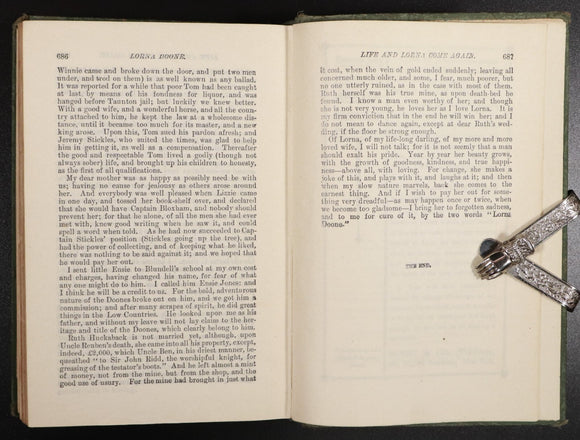 686 LORNA DOONE.
Winnie came and broke down the door, and put two men
under, and trod on them) is as well known as any ballad.
It was reported for a while that poor Tom had been caught
at last, by means of his fondness for liquor, and was
hanged before Taunton jail; but luckily we knew better.
With a good wife, and a wonderful horse, and all the coun-
try attached to him, he kept the law at a wholesome dis-
tance, until it became too much for its master; and a new
king arose. Upon this, Tom sued his pardon afresh; and
Jeremy Stickles, who suited the times, was glad to help
him in getting it, as well as a compensation. Thereafter
the good and respectable Tom lived a godly (though not
always sober) life, and brought up his children to honesty,
as the first of all qualifications.
My dear mother was as happy as possibly need be with
us; having no cause for jealousy as others arose around
her. And everybody was well pleased when Lizzie came
in one day, and tossed her book-shelf over, and declared
that she would have Captain Bloxham, and nobody should
prevent her; for that he alone, of all the men she had ever
met with, knew good writing when he saw it, and could
spell a word when told. As he had now succeeded to Cap-
tain Stickles' position (Stickles going up the tree), and
had the power of collecting, and of keeping what he liked,
there was nothing to be said against it; and we hoped that
he would pay her out.
I sent little Ensie to Blundell's school at my own cost
and charges, having changed his name, for fear of what
any one might do to him. I called him Ensie Jones; and
I think he will be a credit to us. For the bold, adventurous
nature of the Doones broke out on him, and we got him a
commission; and after many scrapes of spirit, he did great
things in the Low Countries. He looked upon me as his
father, and without my leave will not lay claim to the her-
itage and title of the Doones, which clearly belong to him.
Ruth Huckaback is not married yet, although, upon
Uncle Reuben's death, she came into all his property, except,
indeed, £2,000, which Uncle Ben, in his driest manner, be-
queathed "to Sir John Ridd, the worshipful knight, for
greasing of the testator's boots." And he left almost a mint
of money, not from the mine, but from the shop, and the
good use of usury. For the mine had brought in just what
LIFE AND LORNA COME AGAIN. 687
it cost, when the vein of gold ended suddenly; leaving all
concerned much older, and some, I fear, much poorer, but
no one utterly ruined, as is the case with most of them.
Ruth herself was his true mine, as upon death-bed he
found. I know a man even worthy of her; and though
she is not very young, he loves her as I love Lorna. It is
my firm conviction that in the end he will win her; and I
do not mean to dance again, except at dear Ruth's wed-
ding, if the floor be strong enough.
Of Lorna, of my life-long darling, of my more and more
loved wife, I will not talk; for it is not seemly that a man
should exalt his pride. Year by year her beauty grows,
with the growth of goodness, kindness, and true happi-
ness—above all, with loving. For change, she makes a
joke of this, and plays with it, and laughs at it; and then
when my slow nature marvels, back she comes to the
earnest thing. And if I wish to pay her out for some-
thing very dreadful—as may happen once or twice, when
we become too gladsome—I bring her to forgotten sadness,
and to me for cure of it, by the two words "Lorna
Doone."
THE END.